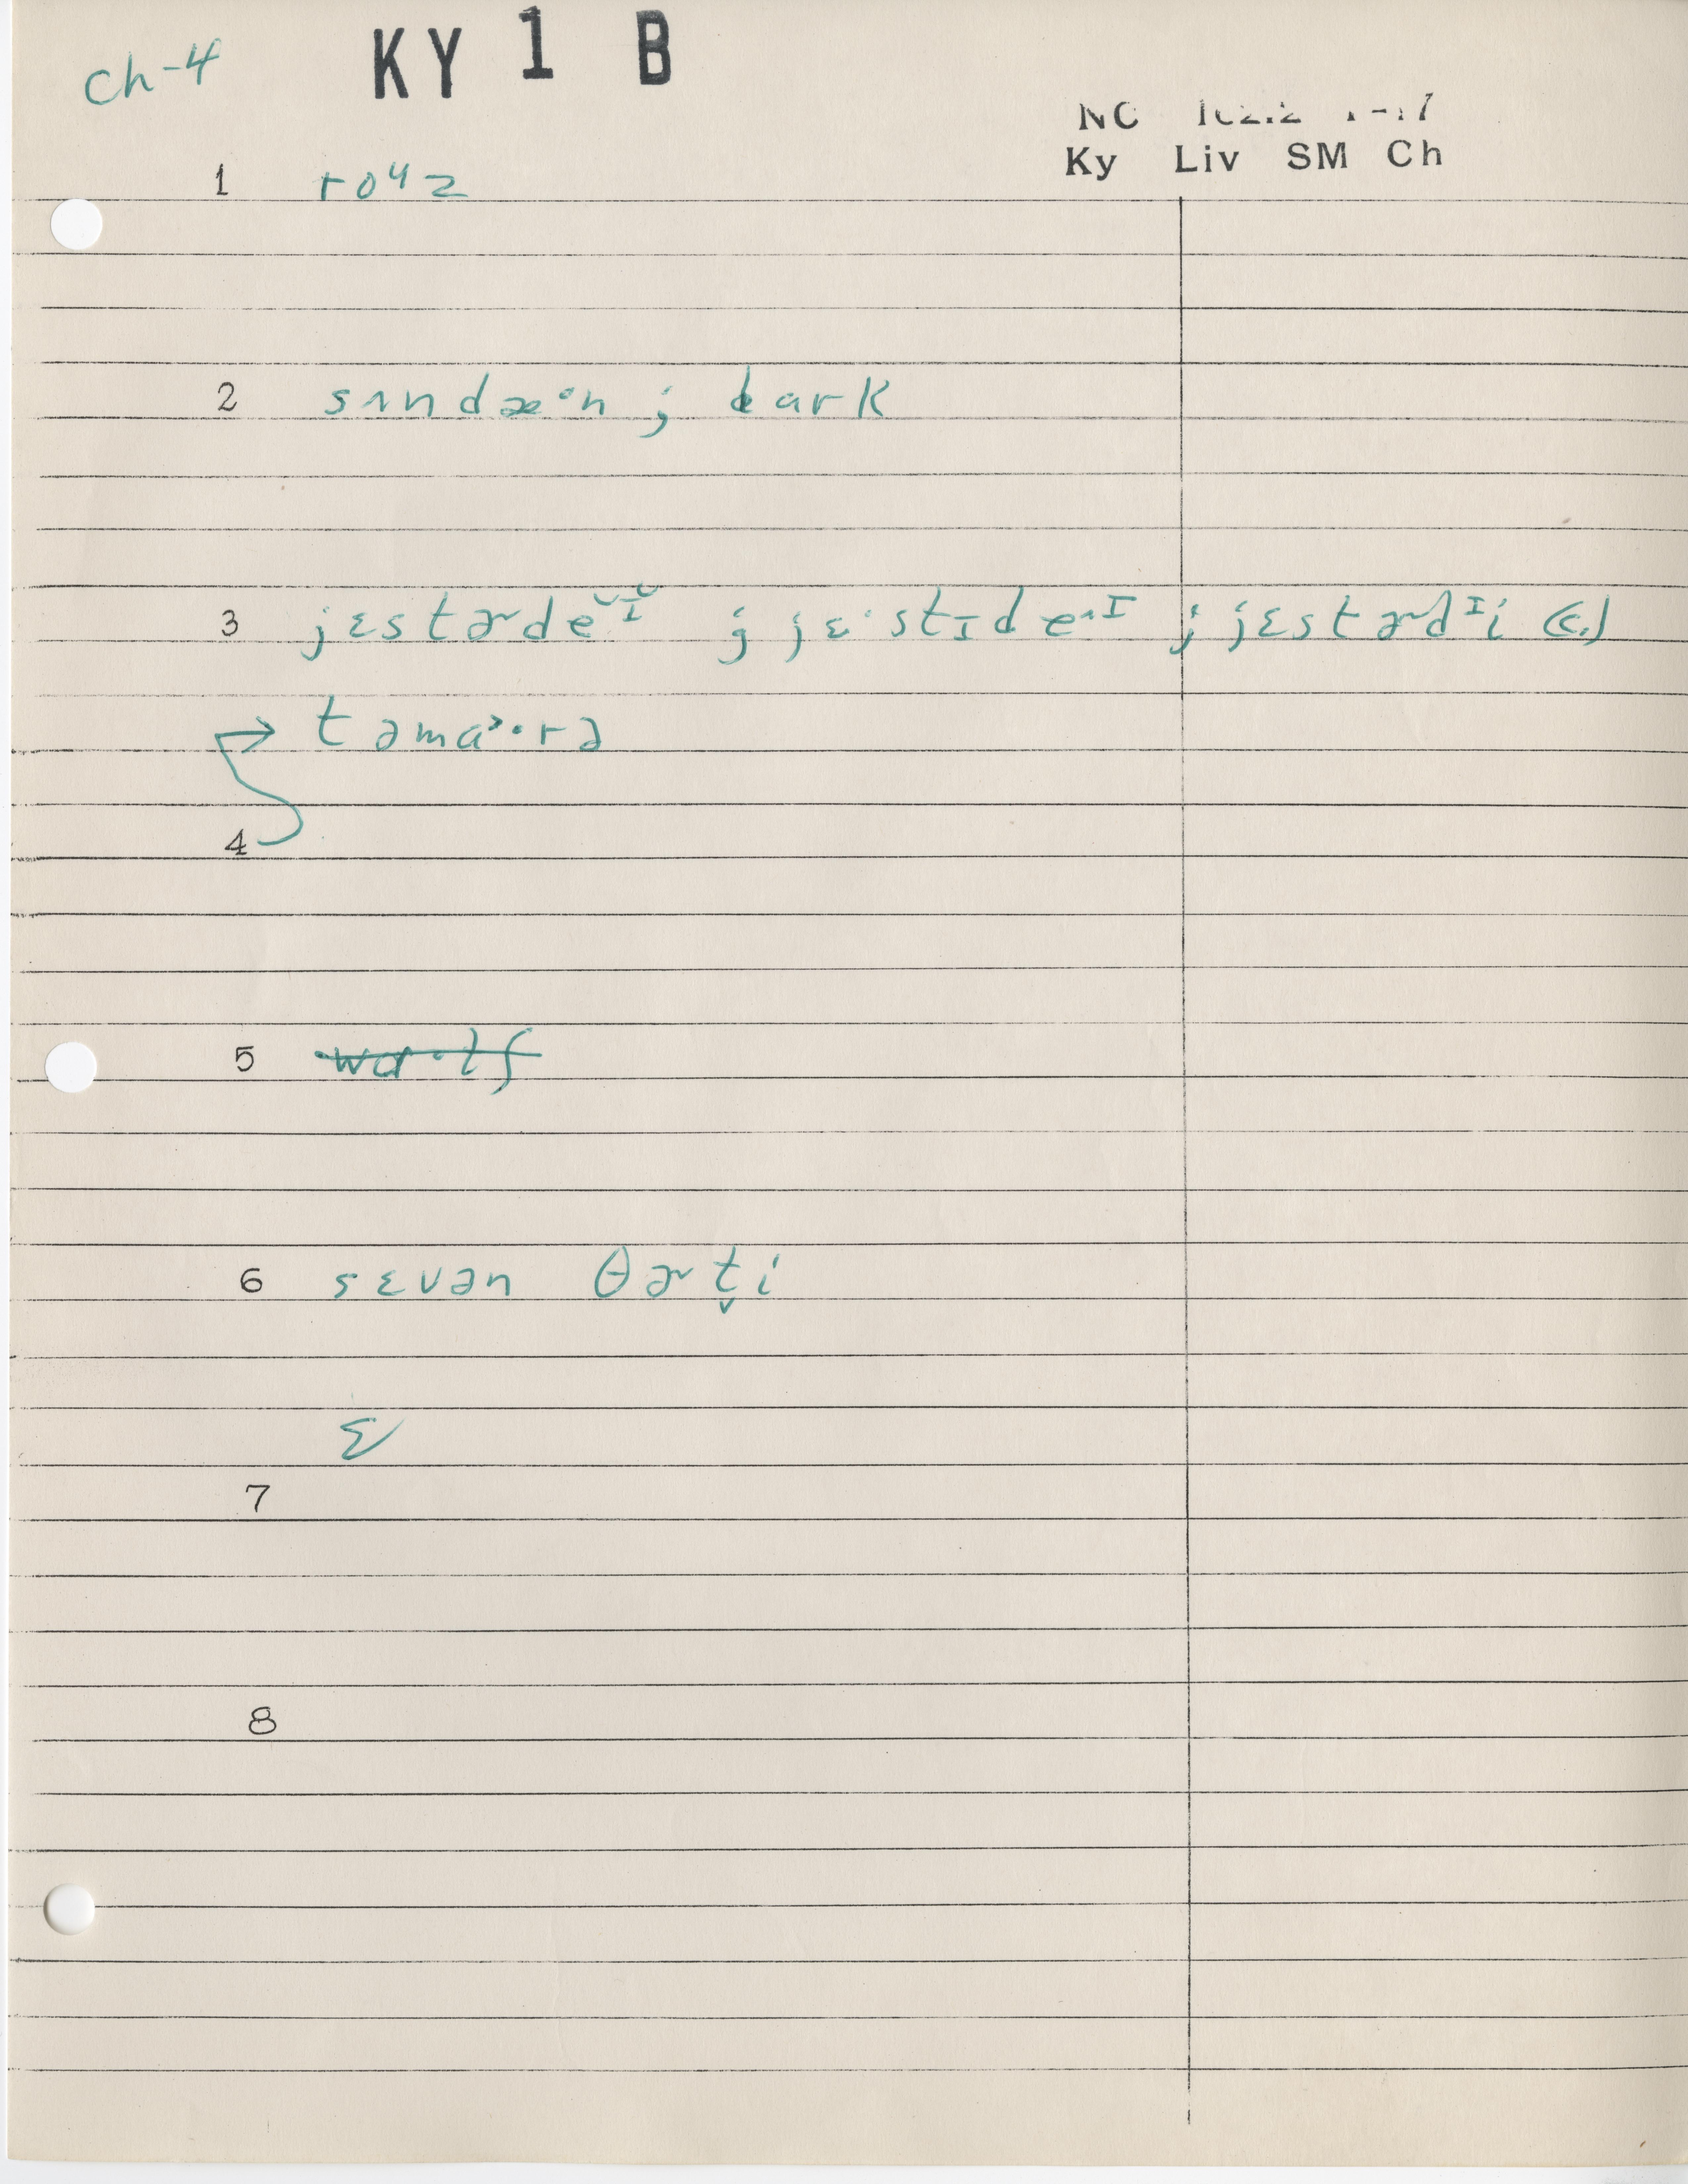 Ch-4 KY 1 B
Ky Liv SM Ch
1 roᶸz
2 sʌndæ·n ; dark
3 jɛstɚdeᵛɪ̆ ; jɛ·stɪdeˑᴵ ; jɛstɚdᴵi (c.)
→ təmɑ˃·rə
4
5 wɑ·lf
6 sɛvən θɚt̬i
Σ
7
8